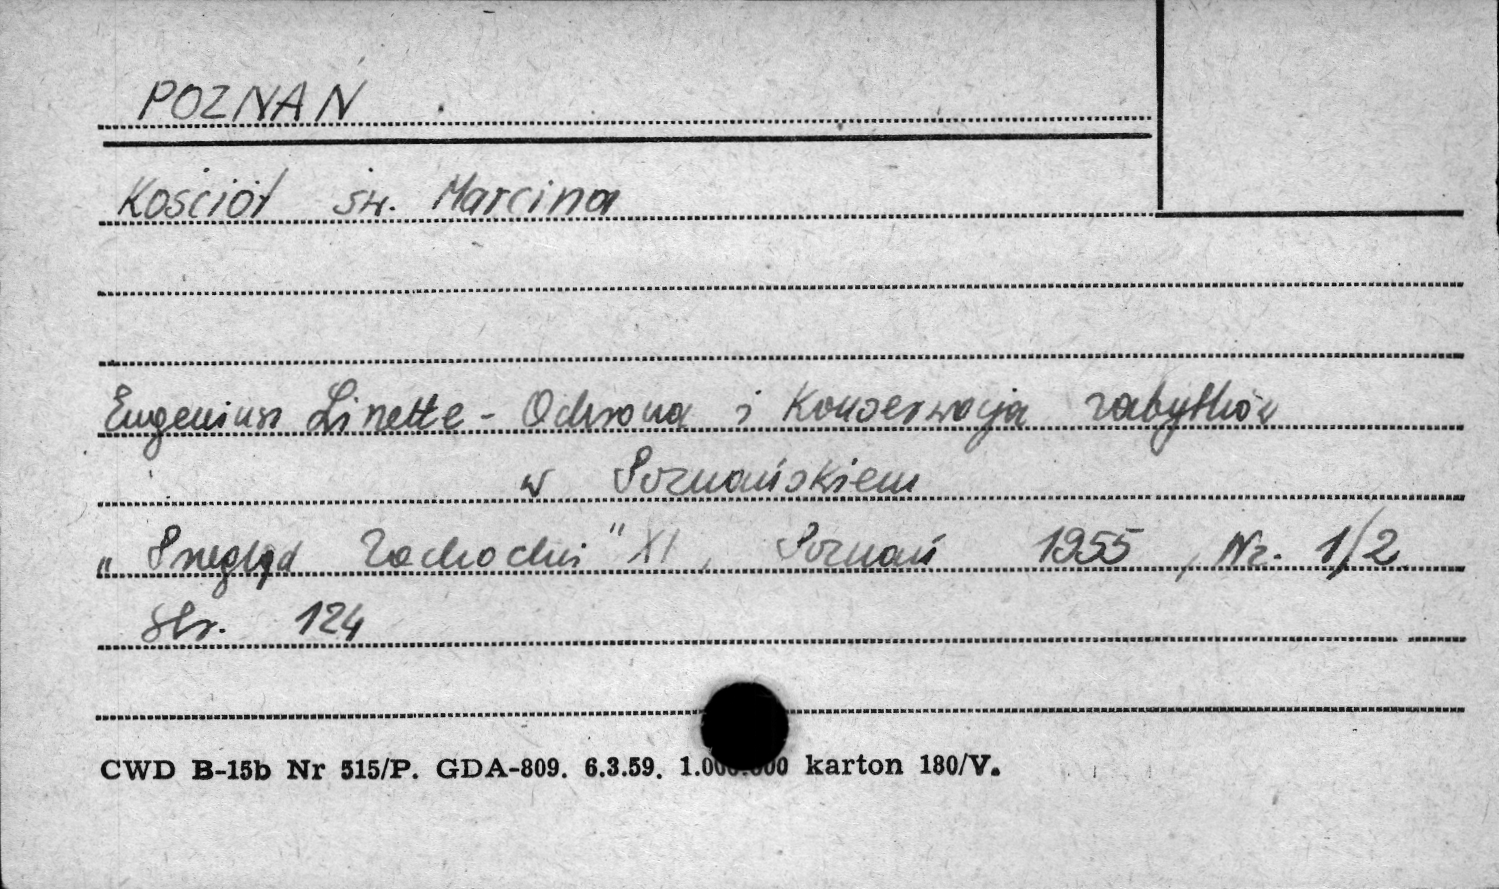 POZNAN
Kościół św. Marcina
Eugeniusz Linette - Ochrona i Konserwacja zabytków
w Poznańskiem
„Przegląd Zachodni" XI, Poznań 1955, Nr. 1/2
Str. 124
CWD B-15b Nr 515/P. GDA-809. 6.3.59. 1.000.000 karton 180/V.